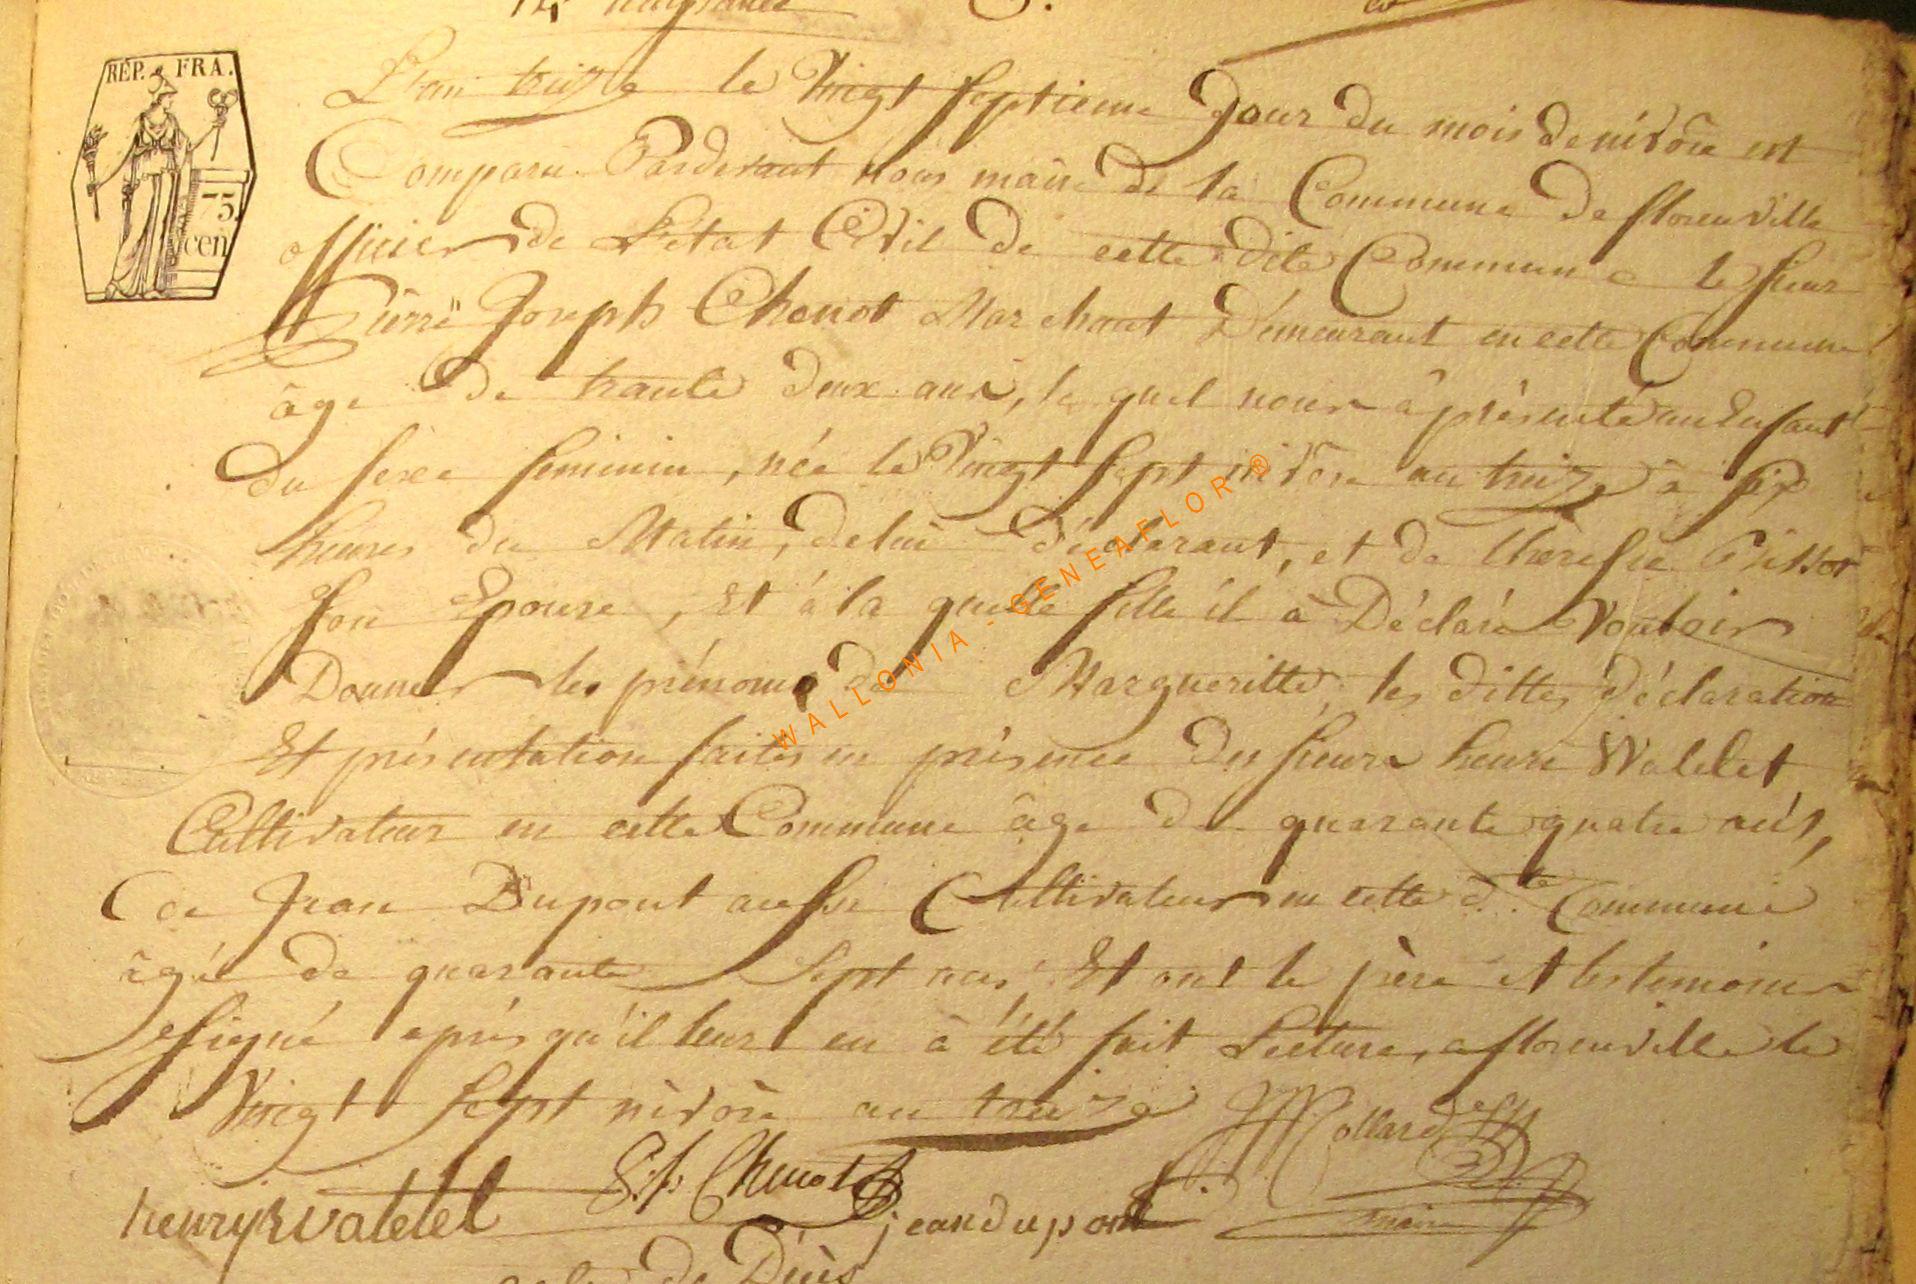 RÉP. FRA.
75
cen
L'an treize le Vingt septieme Jour du mois de nivôse est
Comparu Pardevant nous maire de la Commune de florenville
officier de L'état Civil de cette dite Commune le sieur
Pierre Joseph Chenot Marchant Démeurant en cette Commune
âgé de trante deux ans, le quel nous à présenté un Enfant
du sexe feminin, née le Vingt sept nivôse an treize à six
heures du Matin, de lui déclarant, et de theresse Pissot
son Epouse, Et à la quelle fille il à Déclaré Vouloir
Donner les prénoms de Margueritte, les dittes déclaration
Et présentation faites en présence du sieurs henri Watelet
Cultivateur en cette Commune âgé de quarante quatre ans,
De Jean Dupont aussi Cultivateur en cette dte Commune
âgé de quarante Sept ans, Et ont le père et les temoins
signé après qu'il leurs en à été fait Lecture, a florenville le
Vingt sept nivôse an treize
Collard
henry watelet P. J. Chenot jean dupont maire
WALLONIA - GENEAFLOR ®
acte de Décès